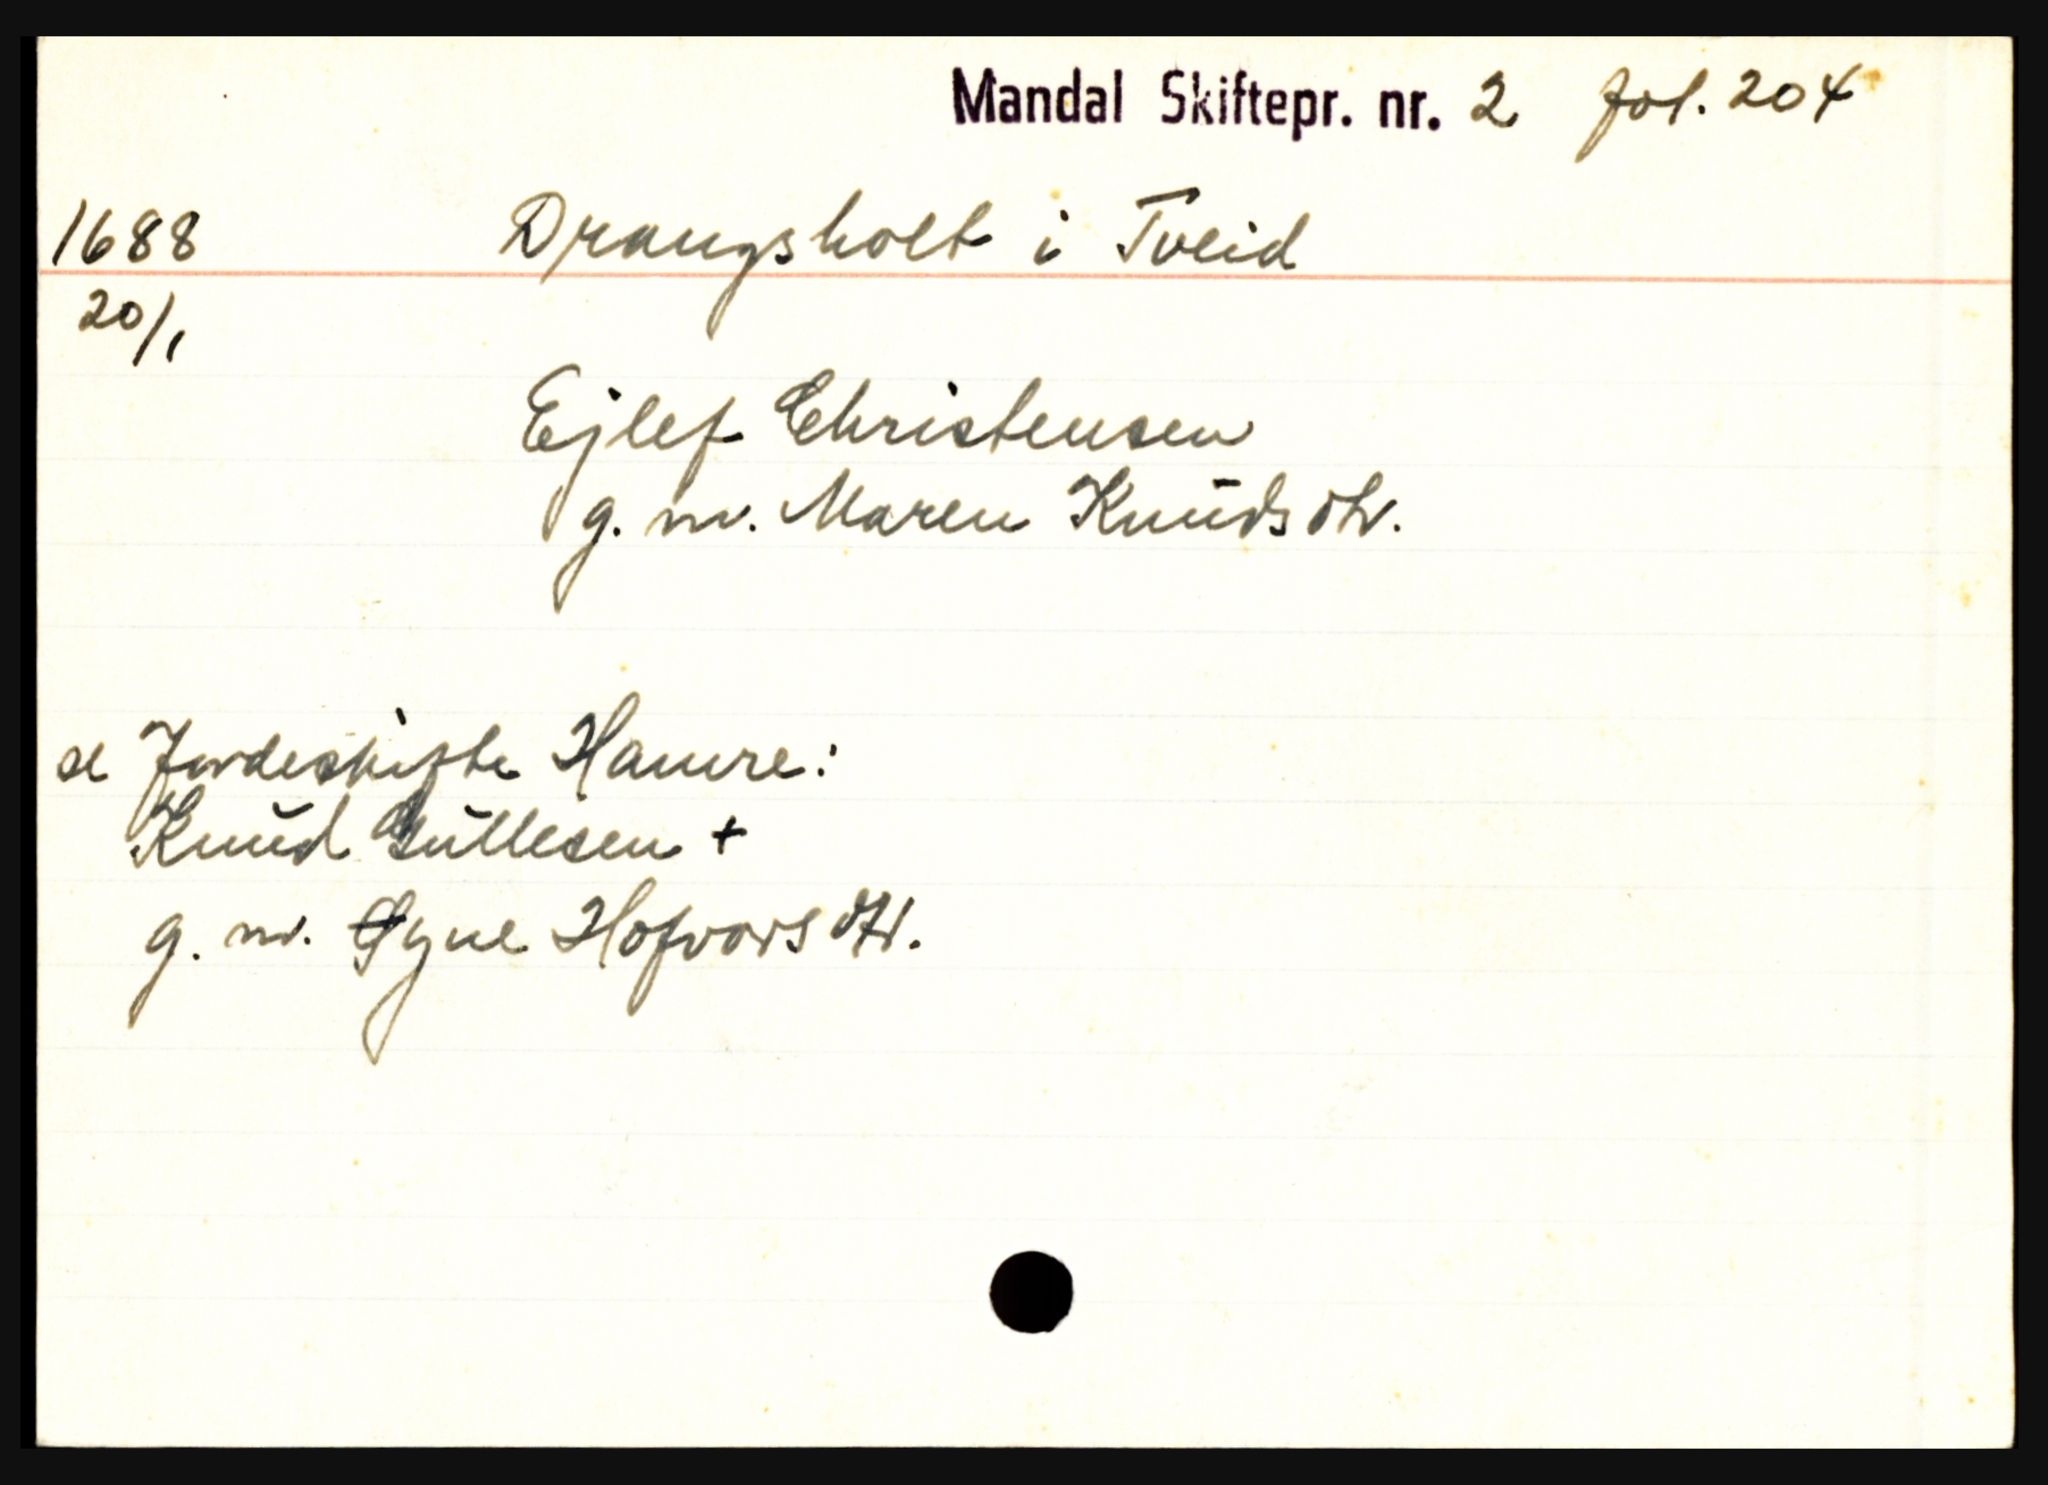 Mandal Skiftepr. nr. 2 fol. 204
1688 Drangsholt i Tveid
20/1
Ejlef Christensen
g. m. Maren Knudsdtr.
se Jordeskifte Hamre:
Knud Gullesen +
g. m. Syne Hofvorsdtr.